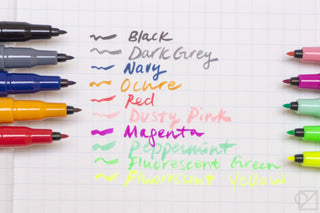 Black
Dark Grey
Navy
Ochre
Red
Dusty Pink
Magenta
Peppermint
Fluorescent Green
Fluorescent Yellow